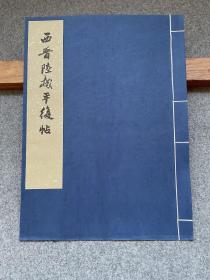 西晋陸機平復帖